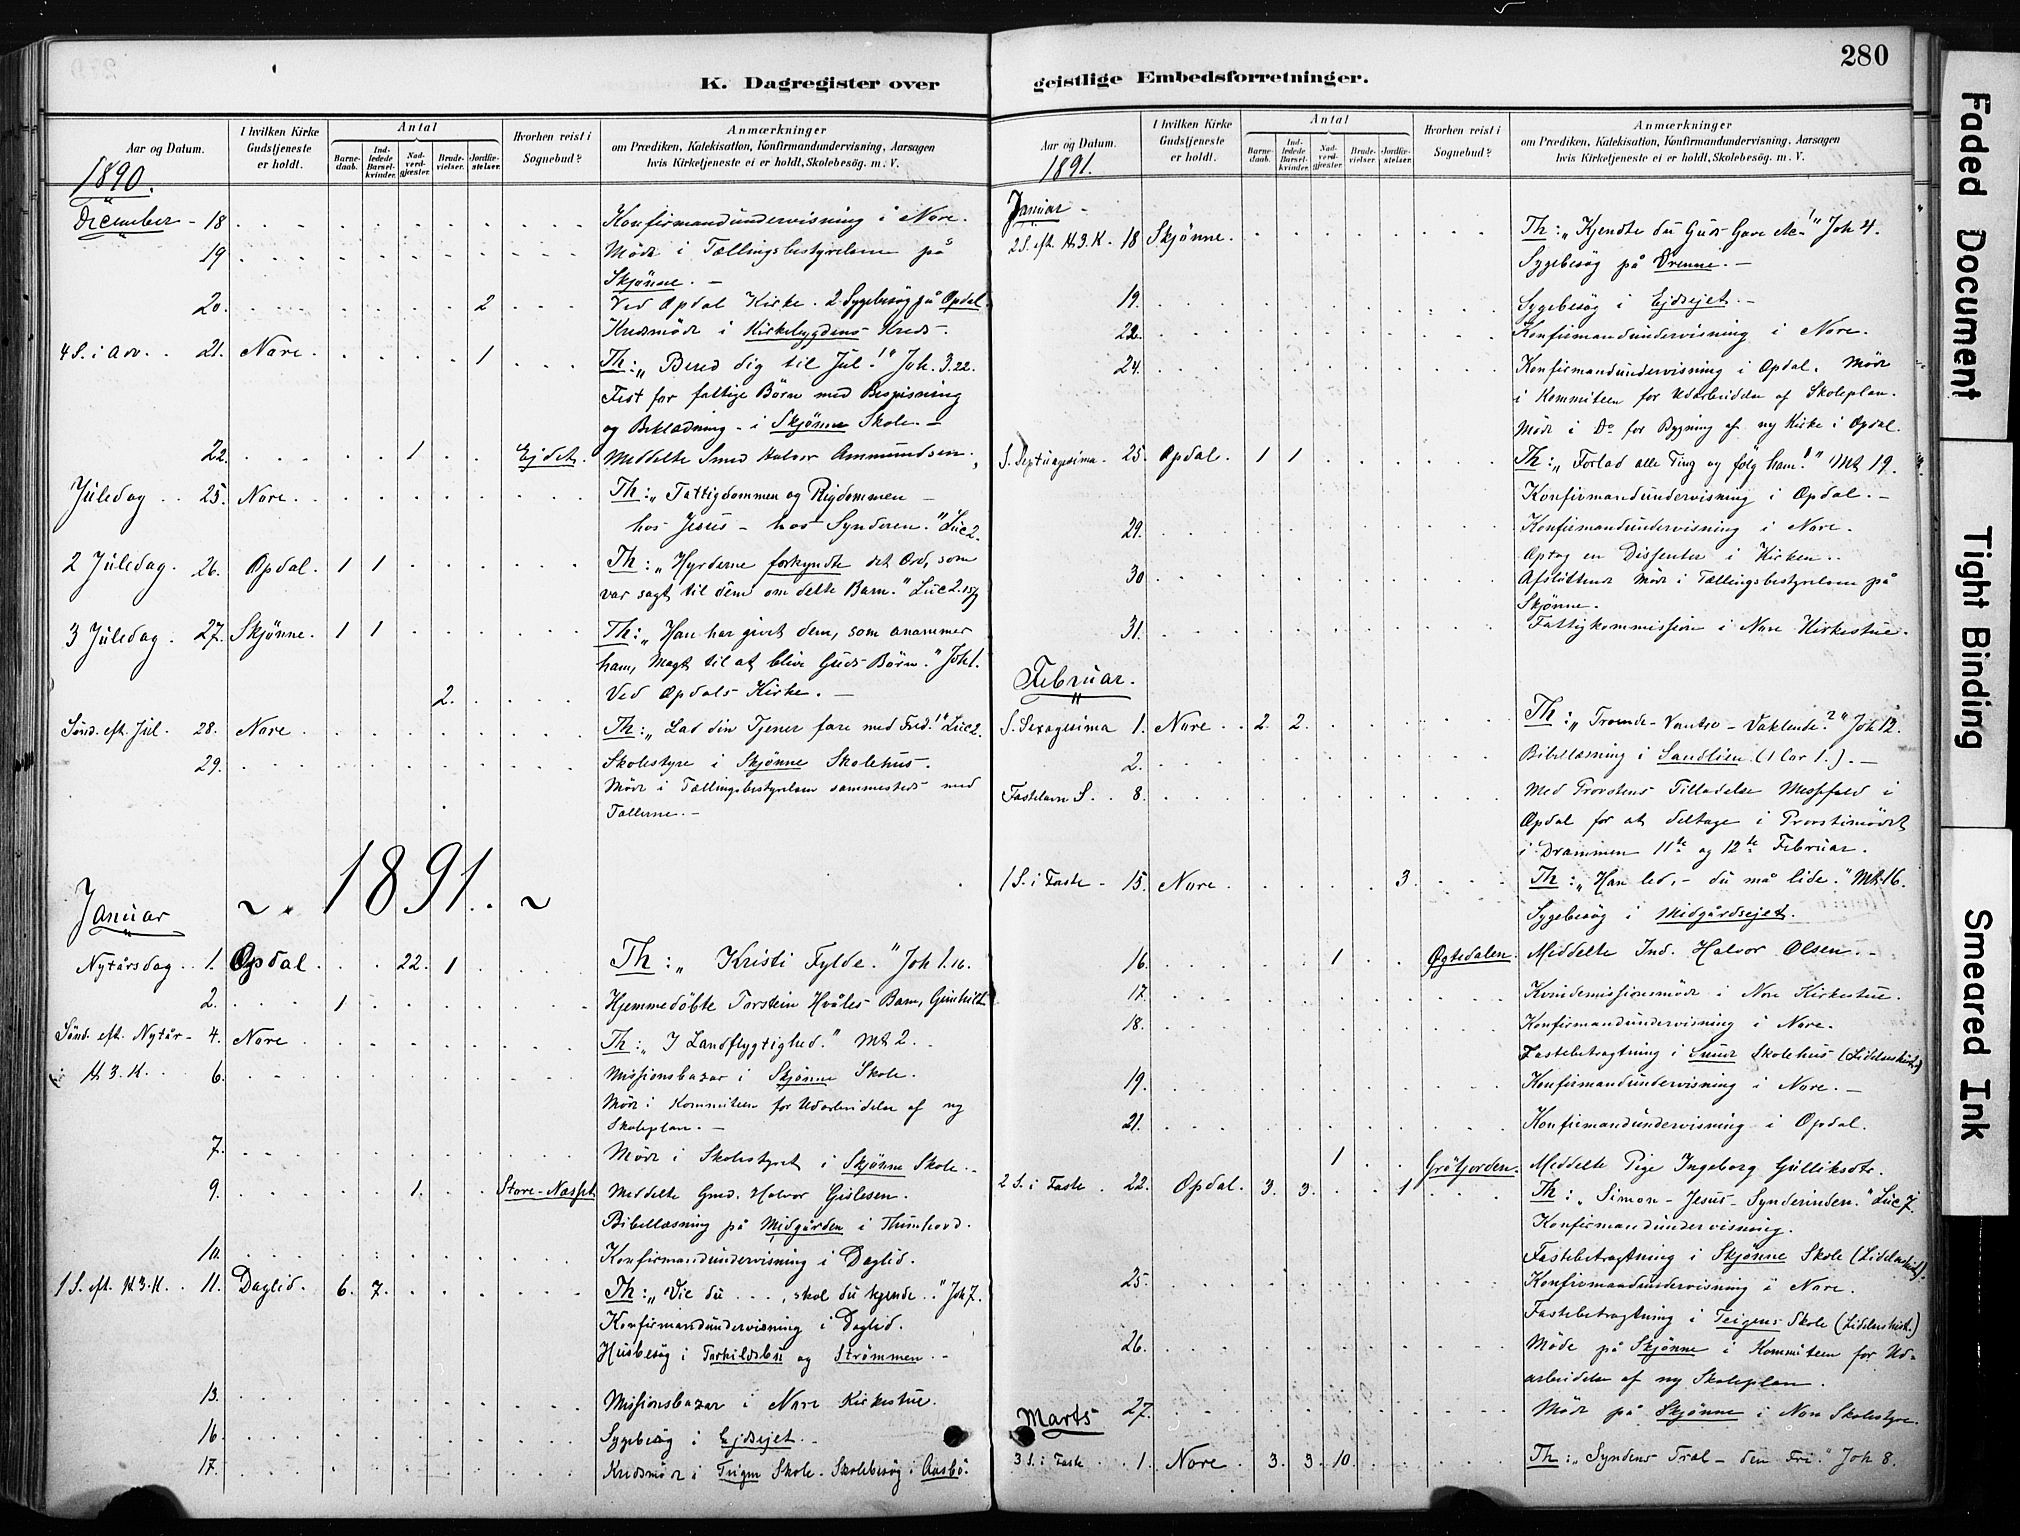 280
K. Dagregister over geistlige Embedsforretninger.
Aar og Datum.
I hvilken Kirke Gudstjeneste er holdt.
Antal
Barne-daab.
Ind-ledede Barsel-kvinder.
Nad-verd-gjæster.
Brude-vielser.
Jordfæ-stelser.
Hvorhen reist i Sognebud?
Anmærkninger
om Prædiken, Katekisation, Konfirmandundervisning, Aarsagen
hvis Kirketjeneste ei er holdt, Skolebesøg. m. V.
1890.
December - 18 Konfirmandundervisning i Nore.
19 Møde i Tællingsbestyrelsen på
Skjønne. -
20. 2 Ved Opdal Kirke. 2 Sygebesøg på Opdal.
Kredsmøde i Kirkebygdens Kreds-
4 S. i Adv. 21. Nore. 1 Th: „Bered dig til Jul!" Joh. 3.22.
Fest for fattige Børn med Bespisning
og Beklædning - i Skjønne Skole. -
22. 1 Ejdet. Meddelte Smed Halvor Ammundsen.
Juledag 25. Nore. Th: „Fattigdommen og Rigdommen -
hos Jesus - hos Synderen." Luc 2.
2 Juledag. 26. Opdal. 1 1 Th: „Hyrderne forkyndte det Ord, som
var sagt til dem om dette Barn." Luc 2.
3 Juledag. 27. Skjønne. 1 1 Th: „Han har givet dem, som anammer
ham, Magt til at blive Guds Børn." Joh 1.
2. Ved Opdals Kirke. -
Sønd. eft. Jul. 28. Nore. Th: „Lad din Tjener fare med Fred!" Luc 2.
29. Skolestyre i Skjønne Skolehus.
Møde i Tællingsbestyrelsen sammesteds med
Tællerne. -
~ 1891. ~
Januar
Nytårsdag 1. Opdal. 22. 1 Th: „Kristi Fylde." Joh 1.16.
2. 1 Hjemmedøbte Torstein Hvåles Barn, Gunhild.
Sønd. eft. Nytår - 4. Nore Th: „I Landflygtighed." Mt 2.
H. 3. K. 6. Missionsbazar i Skjønne Skole.
Møde i Kommiteen for Udarbeidelse af ny
Skoleplan. -
7. Møde i Skolestyret i Skjønne Skole.
9. 1. Store-Næsset. Meddelte Gmd. Halvor Gislesen.
Bibellæsning på Midgården i Thunhovd.
10. Konfirmandundervisning i Daglid.
1 S. eft. H.3.K. 11. Daglid. 6. 7. Th: „Vie du . . . , skal du kjende . ." Joh 7.
Konfirmandundervisning i Daglid.
Husbesøg i Torkildsbu og Strømmen. -
13. Missionsbazar i Nore Kirkestue.
16. Sygebesøg i Ejdsejet. -
17. Kredsmøde i Teigen Skole. Skolebesøg i Aasbø.
Aar og Datum.
I hvilken Kirke Gudstjeneste er holdt.
Antal
Barne-daab.
Ind-ledede Barsel-kvinder.
Nad-verd-gjæster.
Brude-vielser.
Jordfæ-stelser.
Hvorhen reist i Sognebud?
Anmærkninger
om Prædiken, Katekisation, Konfirmandundervisning, Aarsagen
hvis Kirketjeneste ei er holdt, Skolebesøg. m. V.
1891.
Januar -
2 S. eft. H.3.K. 18 Skjønne. Th: „Kjendte du Guds Gave &c!" Joh 4.
Sygebesøg på Vrenne. -
19. Sygebesøg i Ejdsejet. -
22. Konfirmandundervisning i Nore.
24. Konfirmandundervisning i Opdal. Møde
i Kommiteen for Udarbeidelse af Skoleplan.
Møde i Do for Bygning af ny Kirke i Opdal.
S. Septuagesima. 25. Opdal. 1 1 Th: „Forlad alle Ting og følg ham!" Mt 19.
Konfirmandundervisning i Opdal. -
29. Konfirmandundervisning i Nore.
Optog en Dissenter i Kirken.
30 Afsluttende Møde i Tællingsbestyrelsen på
Skjønne.
31. Fattigkommission i Nore Kirkestue.
Februar.
S. Sexagesima 1. Nore. 2. 2. Th: „Troende - Vantro - Vaklende?" Joh 12.
2. Bibellæsning i Sandlien (1 Cor 1.). -
Fastelavn S. 8. Med Provstens Tilladelse Messefald i
Opdal for at deltage i Provstimødet
i Drammen 11te og 12te Februar.
1 S. i Faste - 15. Nore. 3. Th: „Han led, - du må lide." Mt. 16.
Sygebesøg i Midgårdsejet.
16. 1 Øgtedalen. Meddelte Ind. Halvor Olsen. -
17. Kvindemissionsmøde i Nore Kirkestue.
18. Konfirmandundervisning i Nore.
Fastebetragtning i Skolehus (Lidelseshist.)
19. Konfirmandundervisning i Nore. -
21. Konfirmandundervisning i Opdal.
1 Grøtjorden. Meddelte Pige Ingeborg Gulliksdtr.
2 S. i Faste. 22. Opdal. 3. 3. 1 Th: „Simon - Jesus - Synderinden." Luc 7.
Konfirmandundervisning.
Fastebetragtning i Skjønne Skole (Lidelseshist).
25. Konfirmandundervisning i Nore.
Fastebetragtning i Teigens Skole (Lidelseshist.)
26. Møde på Skjønne i Kommiteen for Ud-
arbeidelse af ny Skoleplan.
27. Møde på Skjønne i Nore Skolestyre.
Marts
3 S. i Faste 1. Nore. 3. 3. 10. Th: „Syndens Træl - den Fri." Joh 8.
Faded Document
Tight Binding
Smeared Ink